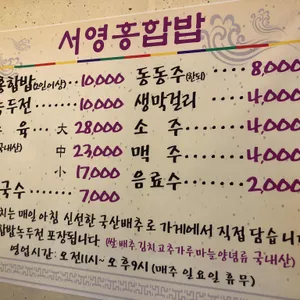 서영홍합밥
홍합밥(2인이상) 10,000 동동주(한되) 8,000
녹두전 10,000 생막걸리 4,000
수육 大 28,000 소주 4,000
국내산) 中 23,000 맥주 4,000
小 17,000 음료수 2,000
국수 7,000
치는 매일아침 신선한 국산배추로 가게에서 직접 담습니다
합밥녹두전 포장됩니다 (쌀 배추김치고추가루,마늘,양념류 국내산)
영업시간: 오전11시~오후9시 (매주 일요일 휴무)